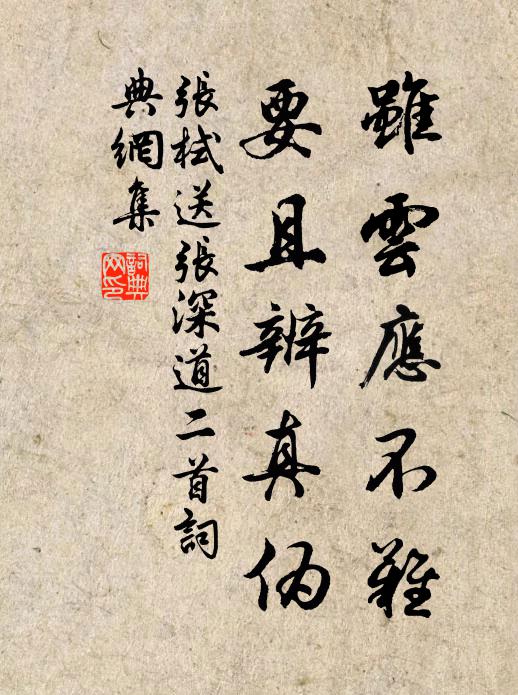 雖雲應不難
要且辨真偽
張栻送張深道二首詞
典網集
詞典網印